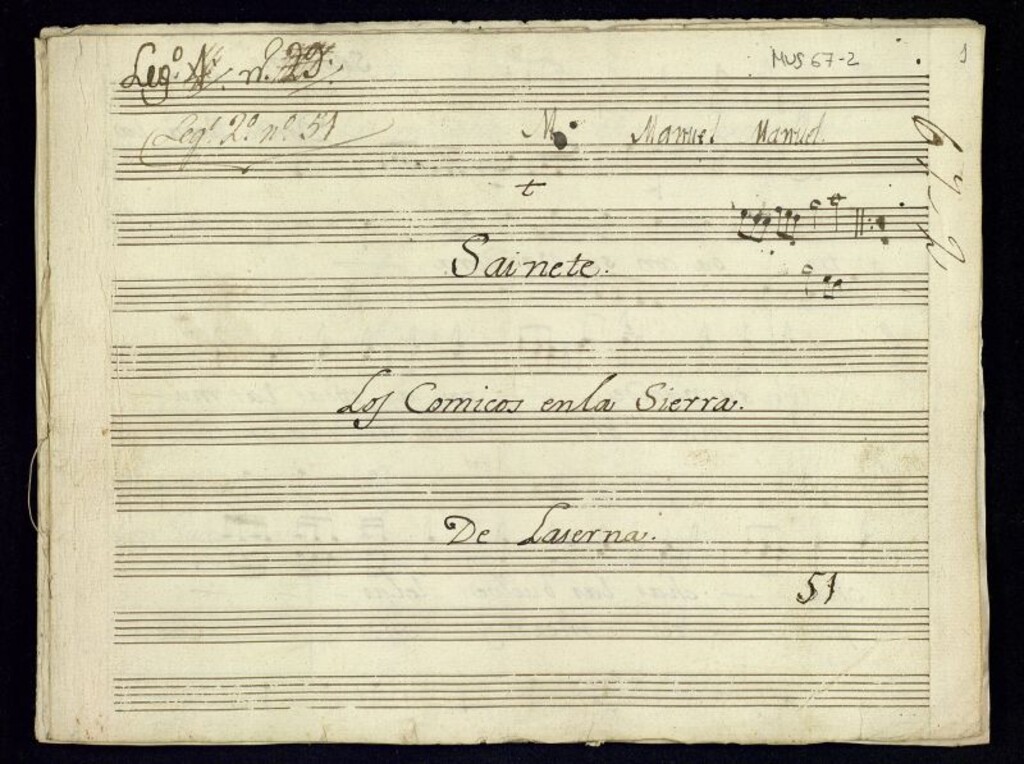 Leg.º n.º 29.
MUS 67-2
1
Leg.º 2.º n.º 51
M
Manuel Manuel
t
Sainete.
Los Comicos en la Sierra.
De Laserna.
51